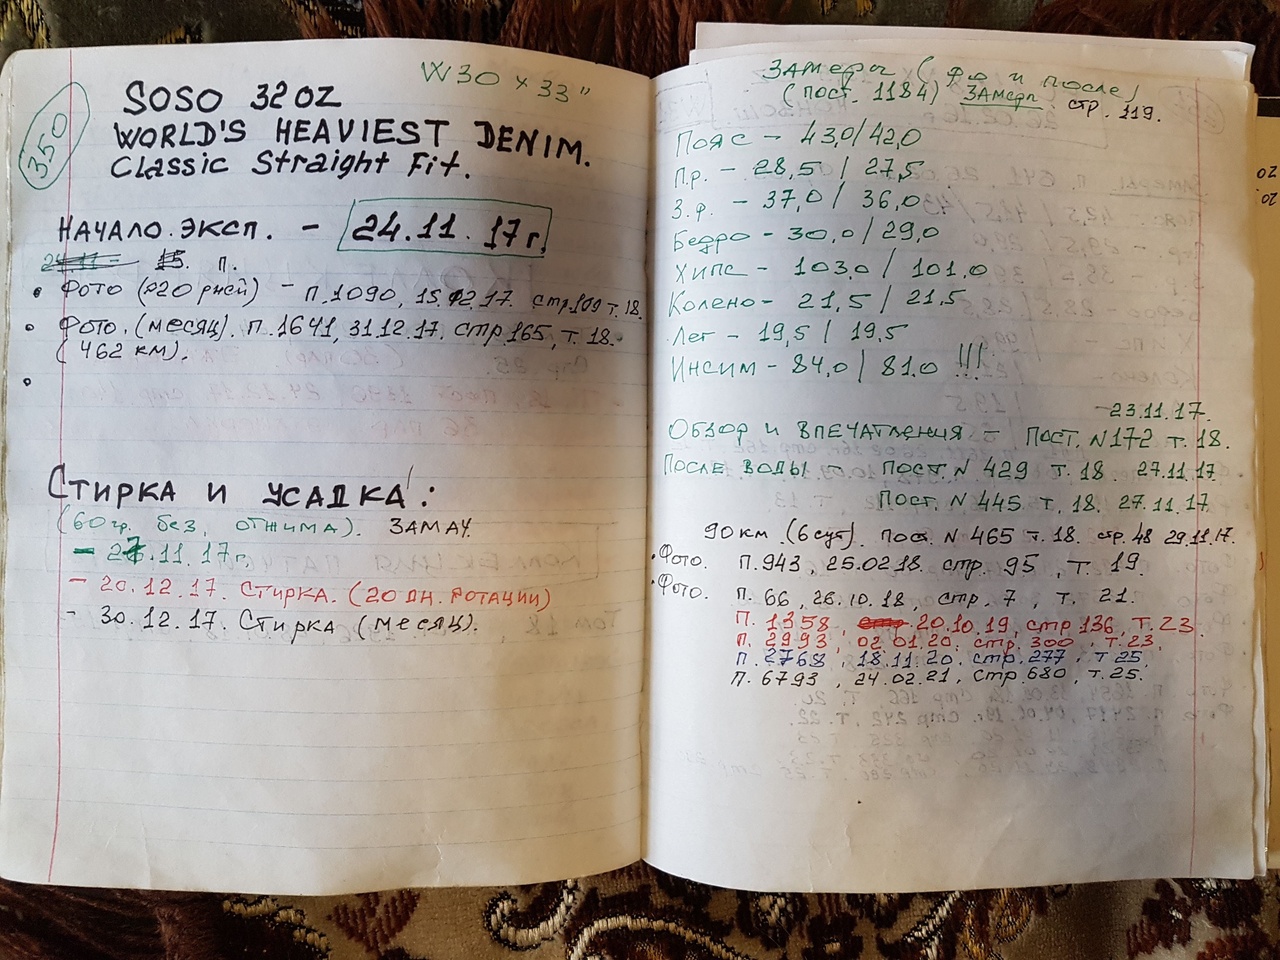 350
W30 x 33"
SOSO 32OZ
WORLD'S HEAVIEST DENIM.
Classic Straight Fit.
НАЧАЛО. ЭКСП. - 24.11.17г.
П.
• Фото (20 дней) - п.1090, 15.12.17. стр.109 т.18.
• Фото. (месяц). п.1641, 31.12.17. стр.165, т.18.
(462 км).
•
СТИРКА И УСАДКА!:
(60гр. без, отжима). ЗАМАЧ.
- 27.11.17г.
- 20.12.17. Стирка. (20 дн. ротации)
- 30.12.17. Стирка (месяц).
ЗАМеры (до и после)
(пост. 1184) ЗАМеры стр. 119.
Пояс - 43,0/42,0
П.р. - 28,5 / 27,5
З.ф. - 37,0 / 36,0
Бедро - 30,0 / 29,0
Хипс - 103,0 / 101.0
Колено - 21,5 / 21,5
Лег - 19,5 / 19,5
Инсим - 84,0 / 81.0 !!!
- 23.11.17.
Обзор и впечатления - пост. N172 т.18.
После воды - пост. N 429 т.18 27.11.17.
Пост. N 445. т. 18. 27.11.17
90 км. (6 сут). Пост. N 465 т.18. стр.48 29.11.17.
• Фото. П.943, 25.02.18. стр. 95, т. 19.
• Фото. П. 66, 26.10.18, стр. 7, т. 21.
П. 1358, 20.10.19, стр 136, т.23
П. 2993, 02.01.20. стр. 300, т.23,
П. 2768, 18.11.20. стр.277, т 25,
П. 6793, 24.02.21, стр.680, т.25.